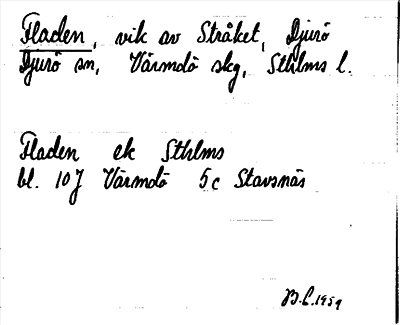 Fladen, vik av Stråket, Djurö
Djurö sn, Värmdö skg, Sthlms l.
Fladen ek Sthlms
bl. 10J Värmdö 5c Stavsnäs
B.L. 1959